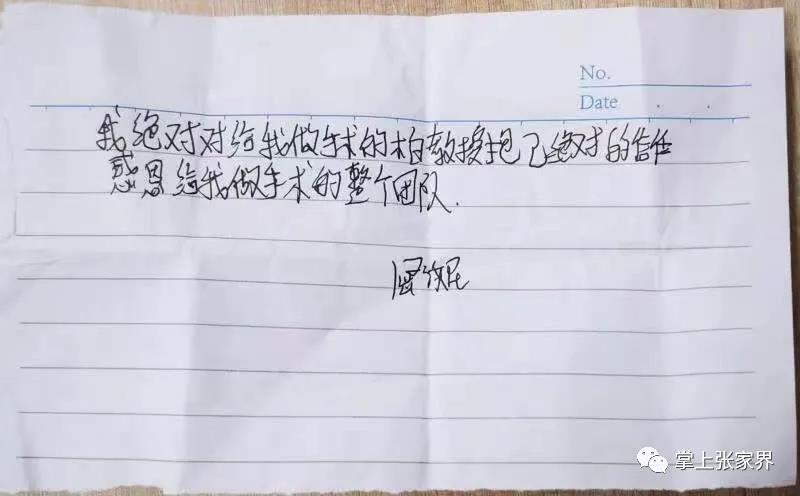 No.
Date
我绝对对给我做手术的柏教授抱已绝对的信任
感恩给我做手术的整个团队.
掌上张家界